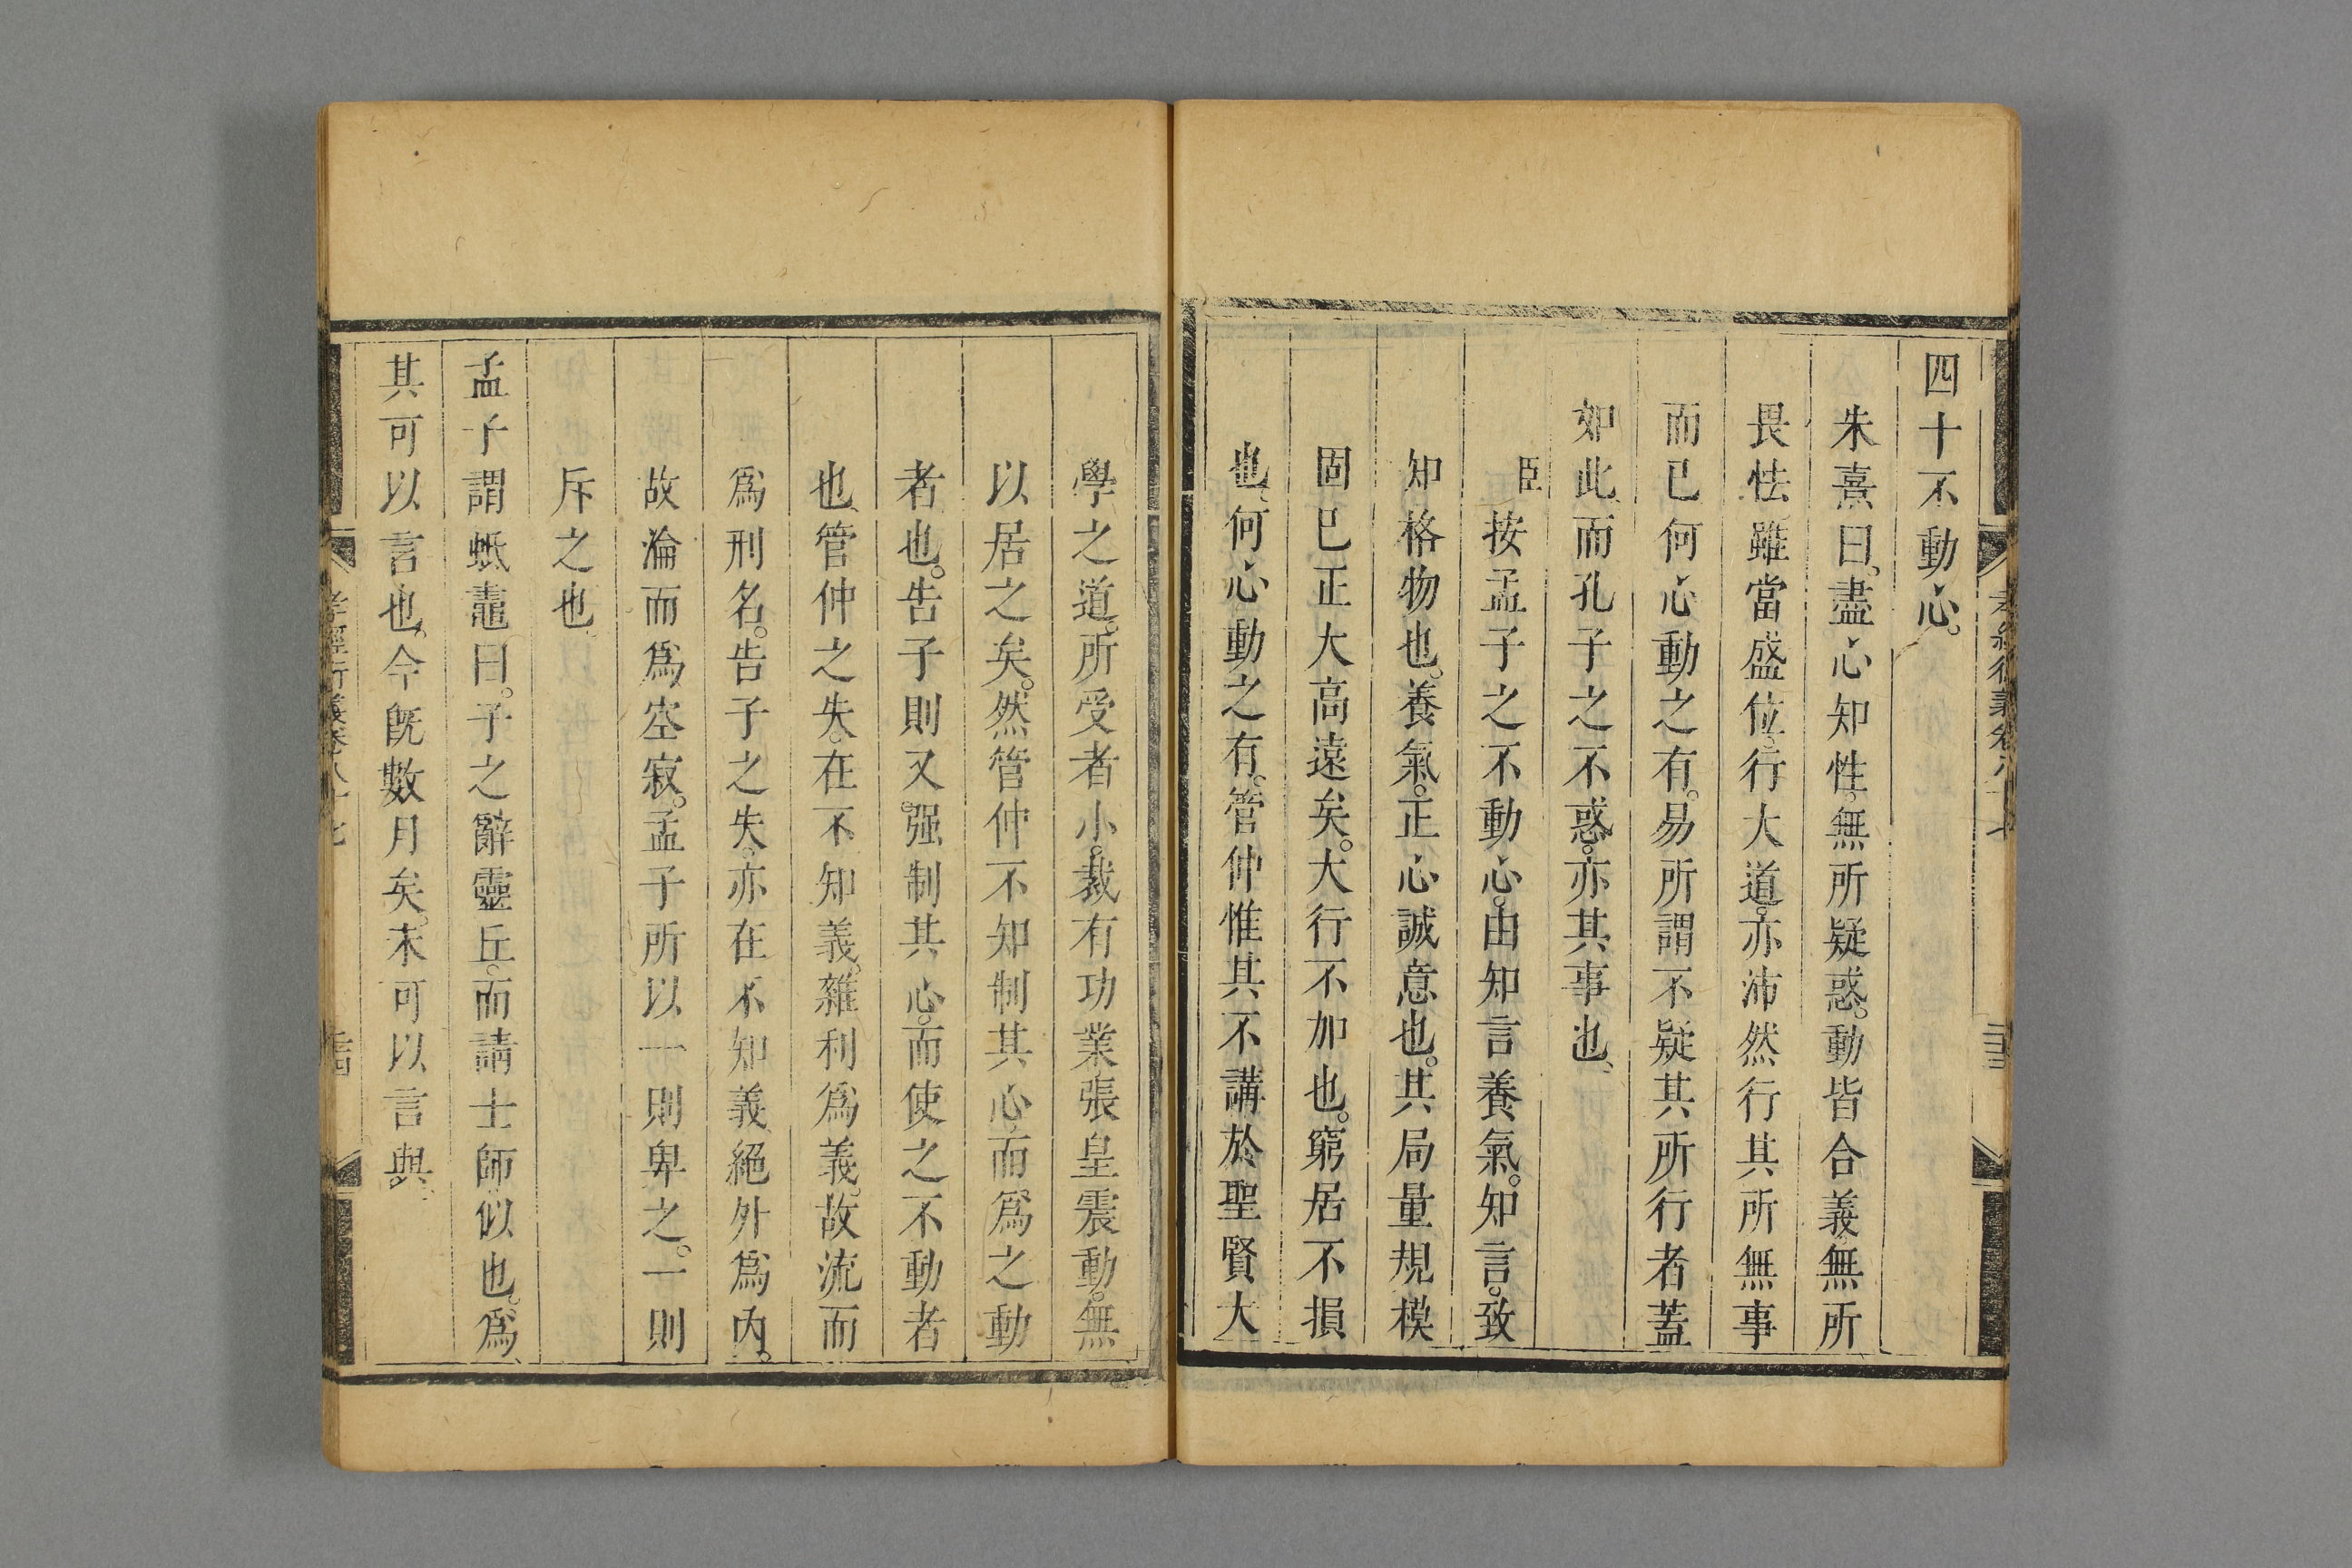 四十不動心。
朱熹曰。盡心知性。無所疑惑。動皆合義無所
畏怯。雖當盛位。行大道。亦沛然行其所無事
而已何心動之有。易所謂不疑其所行者蓋
如此、而孔子之不惑。亦其事也、
臣按孟子之不動心。由知言養氣。知言。致
知格物也。養氣。正心誠意也。其局量規模
固已正大高遠矣。大行不加也。窮居不損
也、何心動之有。管仲惟其不講於聖賢大
學之道。所受者小。裁有功業張皇震動。無
以居之矣。然管仲不知制其心而爲之動
者也。告子則又强制其心。而使之不動者
也、管仲之失。在不知義。雜利爲義。故流而
爲刑名。告子之失。亦在不知義、絕外爲內。
故淪而爲空寂。孟子所以一則卑之。一則
斥之也。
孟子謂蚳鼃曰。子之辭靈丘。而請士師似也。爲
其可以言也。今旣數月矣。未可以言與。
孝經衍義卷八十七